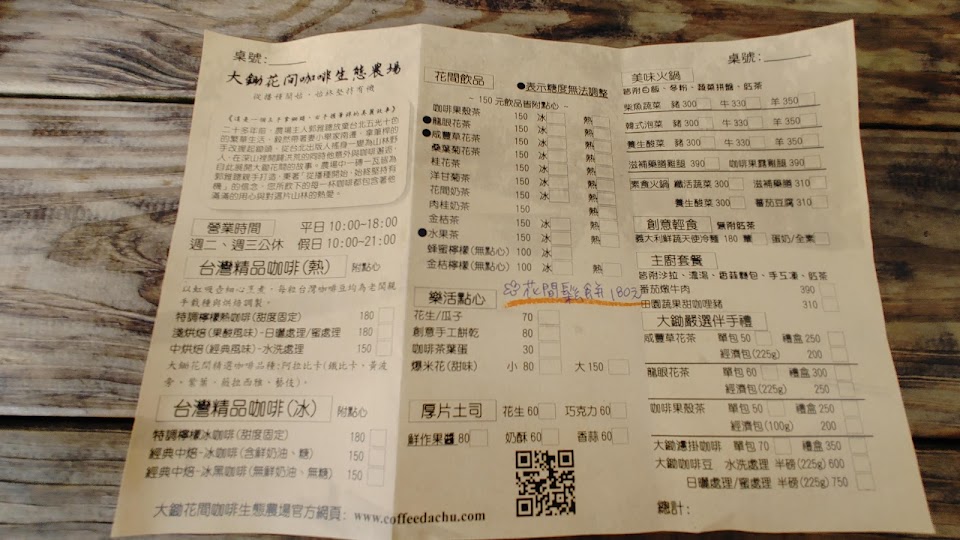 桌號:
大鋤花間咖啡生態農場
從播種開始，始終堅持有機
二十多年前，農場主人郭雅聰放棄台北五光十色
的繁華生活，毅然帶著妻小舉家南遷，拿筆桿的
手改握起鋤頭，從台北出版人搖身一變為山林野
人，在深山裡開闢洪荒的同時他意外與咖啡邂逅，
自此展開大鋤花間的故事。農場中一磚一瓦皆為
郭雅聰親手打造，秉著「從播種開始，始終堅持有
機」的信念，您所飲下的每一杯咖啡都包含著他
滿滿的用心與對這片山林的熱愛。
營業時間 平日 10:00~18:00
週二、週三公休 假日 10:00~21:00
台灣精品咖啡(熱) 附點心
以虹吸壺細心烹煮，每粒台灣咖啡豆均為老闆親
手栽種與烘焙調製。
特調檸檬熱咖啡(甜度固定) 180
淺烘焙(果酸風味)-日曬處理/蜜處理 180
中烘焙(經典風味)-水洗處理 150
大鋤花間精選咖啡品種:阿拉比卡(鐵比卡、黃波
旁、紫葉、薇拉西雅、藝伎)。
台灣精品咖啡(冰) 附點心
特調檸檬冰咖啡(甜度固定) 180
經典中焙-冰咖啡(含鮮奶油、糖) 150
經典中焙-冰黑咖啡(無鮮奶油、無糖) 150
大鋤花間咖啡生態農場官方網頁: www.coffeedachu.com
花間飲品 ●表示糖度無法調整
- 150 元飲品皆附點心 -
咖啡果殼茶 150 冰 熱
●龍眼花茶 150 冰 熱
●咸豐草花茶 150 冰 熱
桑葉菊花茶 150 冰 熱
桂花茶 150 冰 熱
洋甘菊茶 150 冰 熱
花間奶茶 150 冰 熱
肉桂奶茶 150 熱
金桔茶 150 冰 熱
●水果茶 150 冰 熱
蜂蜜檸檬(無點心) 100 冰
金桔檸檬(無點心) 100 冰 熱
樂活點心 花間鬆餅 180元
花生/瓜子 70
創意手工餅乾 80
咖啡茶葉蛋 30
爆米花(甜味) 小 80 大 150
厚片土司 花生 60 巧克力 60
鮮作果醬 80 奶酥 60 香蒜 60
桌號:
美味火鍋
皆附白飯、冬粉、蔬菜拼盤、飲茶
柴魚蔬菜 豬 300 牛 330 羊 350
韓式泡菜 豬 300 牛 330 羊 350
養生酸菜 豬 300 牛 330 羊 350
滋補藥膳雞腿 390 咖啡果露雞腿 390
素食火鍋 纖活蔬菜 300 滋補藥膳 310
養生酸菜 300 蕃茄豆腐 310
創意輕食 皆附飲茶
義大利鮮蔬天使冷麵 180 葷 蛋奶/全素
主廚套餐
皆附沙拉、濃湯、香蒜麵包、手工凍、飲茶
番茄燉牛肉 390
田園蔬果甜咖哩豬 310
大鋤嚴選伴手禮
咸豐草花茶 單包 50 禮盒 250
經濟包(225g) 200
龍眼花茶 單包 60 禮盒 300
經濟包(225g) 250
咖啡果殼茶 單包 50 禮盒 250
經濟包(100g) 200
大鋤濾掛咖啡 單包 70 禮盒 350
大鋤咖啡豆 水洗處理 半磅(225g) 600
日曬處理/蜜處理 半磅(225g) 750
總計: